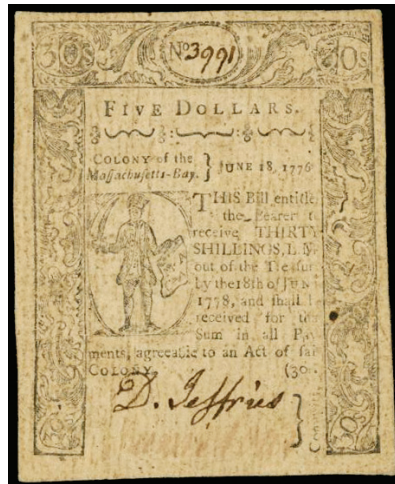 30s No 3991 30s
FIVE DOLLARS.
COLONY of the } JUNE 18, 1776
Massachusetts-Bay.
THIS Bill entitles
the Bearer t
receive THIRTY
SHILLINGS, L. M.
out of the Treasur
by the 18th of JUN
1778, and shall
received for the
Sum in all Pay
ments, agreeable to an Act of sai
COLONY. (30s
D. Jeffries }
30s 30s